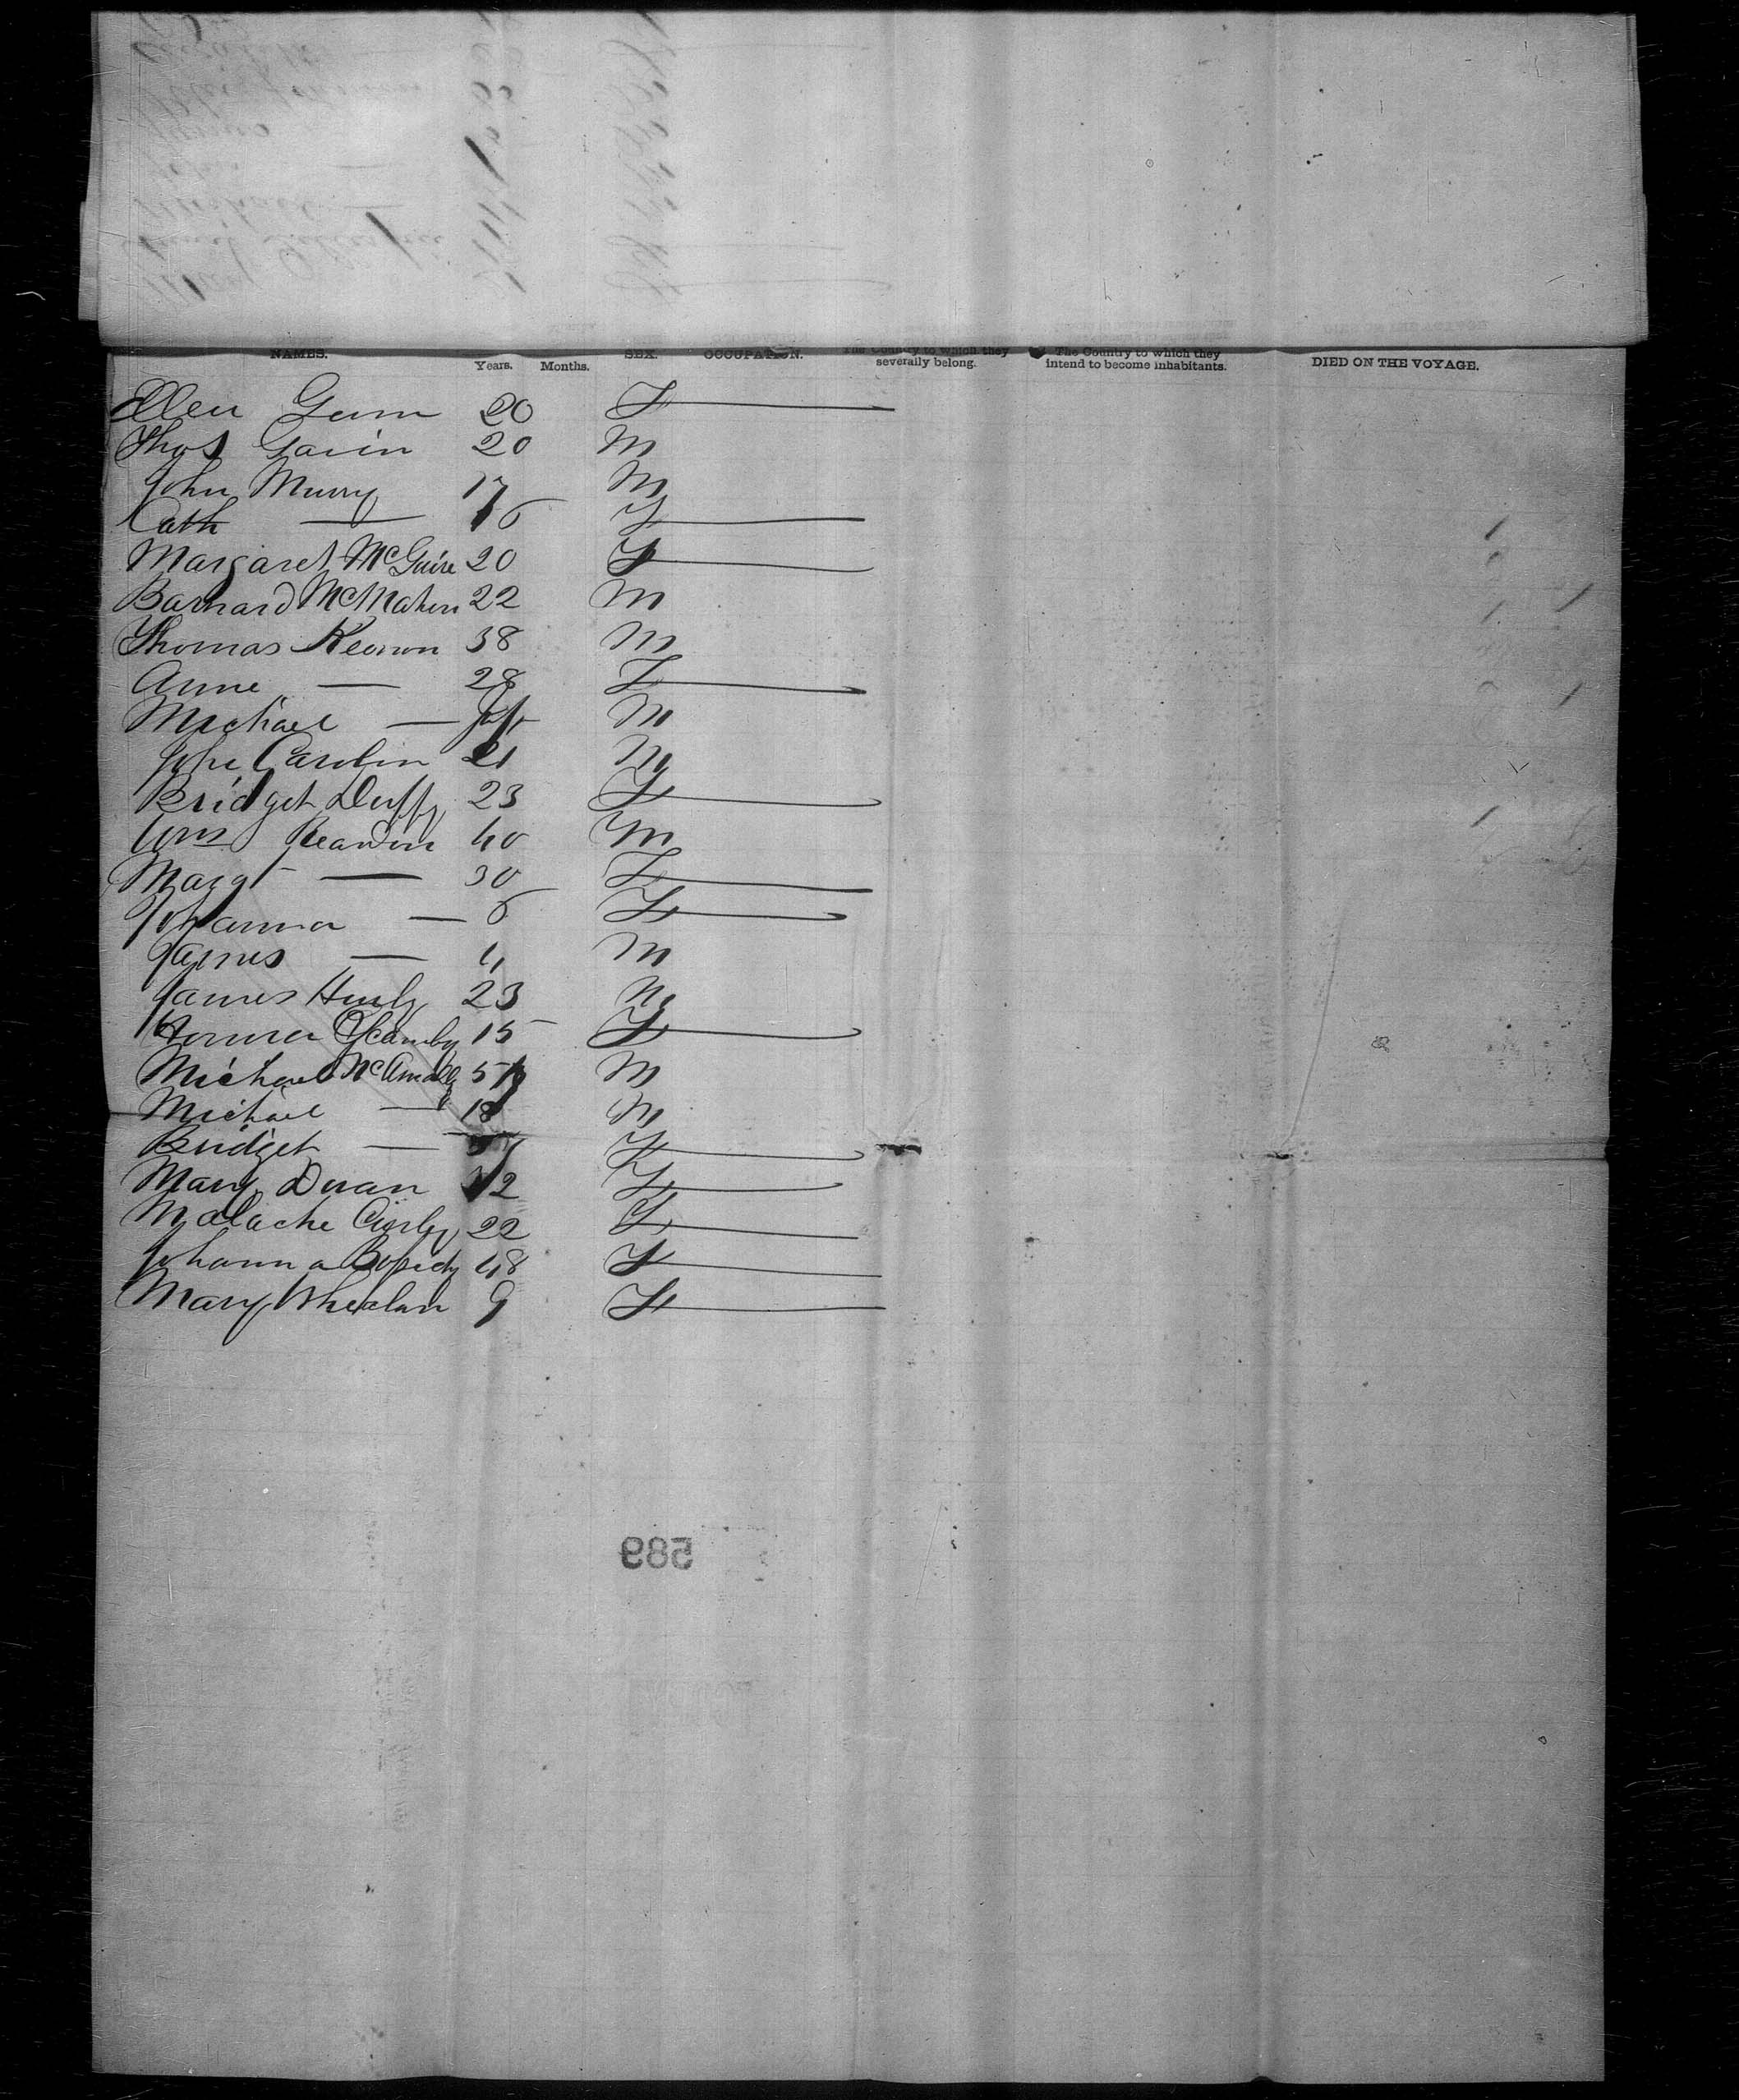 NAMES. Years. Months. SEX. OCCUPATION. The Country to which they severally belong. The Country to which they intend to become inhabitants. DIED ON THE VOYAGE.
Ellen Gunn 20 F
Thos Gavin 20 M
John Murry 17 M
Cath — 16 F
Margaret McGuire 20 F
Barnard McMahon 22 M
Thomas Keonon 38 M
Anne — 28 F
Michael — Inft M
John Carolin 21 M
Bridget Duffy 23 F
Wm Reardon 40 M
Margt — 30 F
Johanna — 6 F
James — 4 M
James Hurly 23 M
15 F
Michael McAnally M
Michael — 18 M
Bridget — F
Mary Doran F
Malache 22 F
Johanna 48 F
Mary Whealan 9 F
589